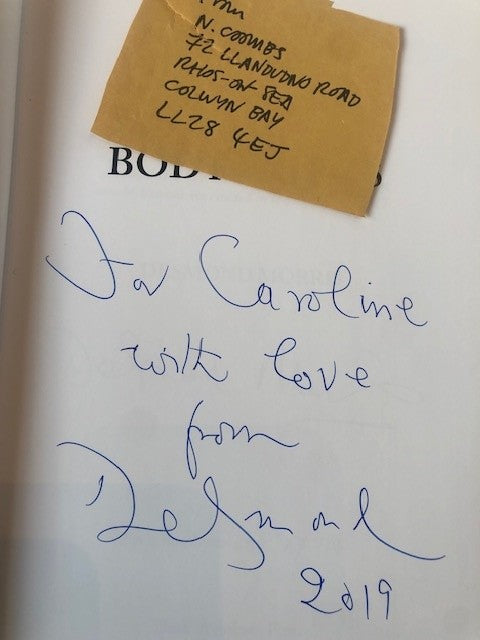 N. COOMBS
72 LLANDUDNO ROAD
RHOS-ON SEA
COLWYN BAY
LL28 4EJ
BOD
For Caroline
with love
from
Desmond
2019